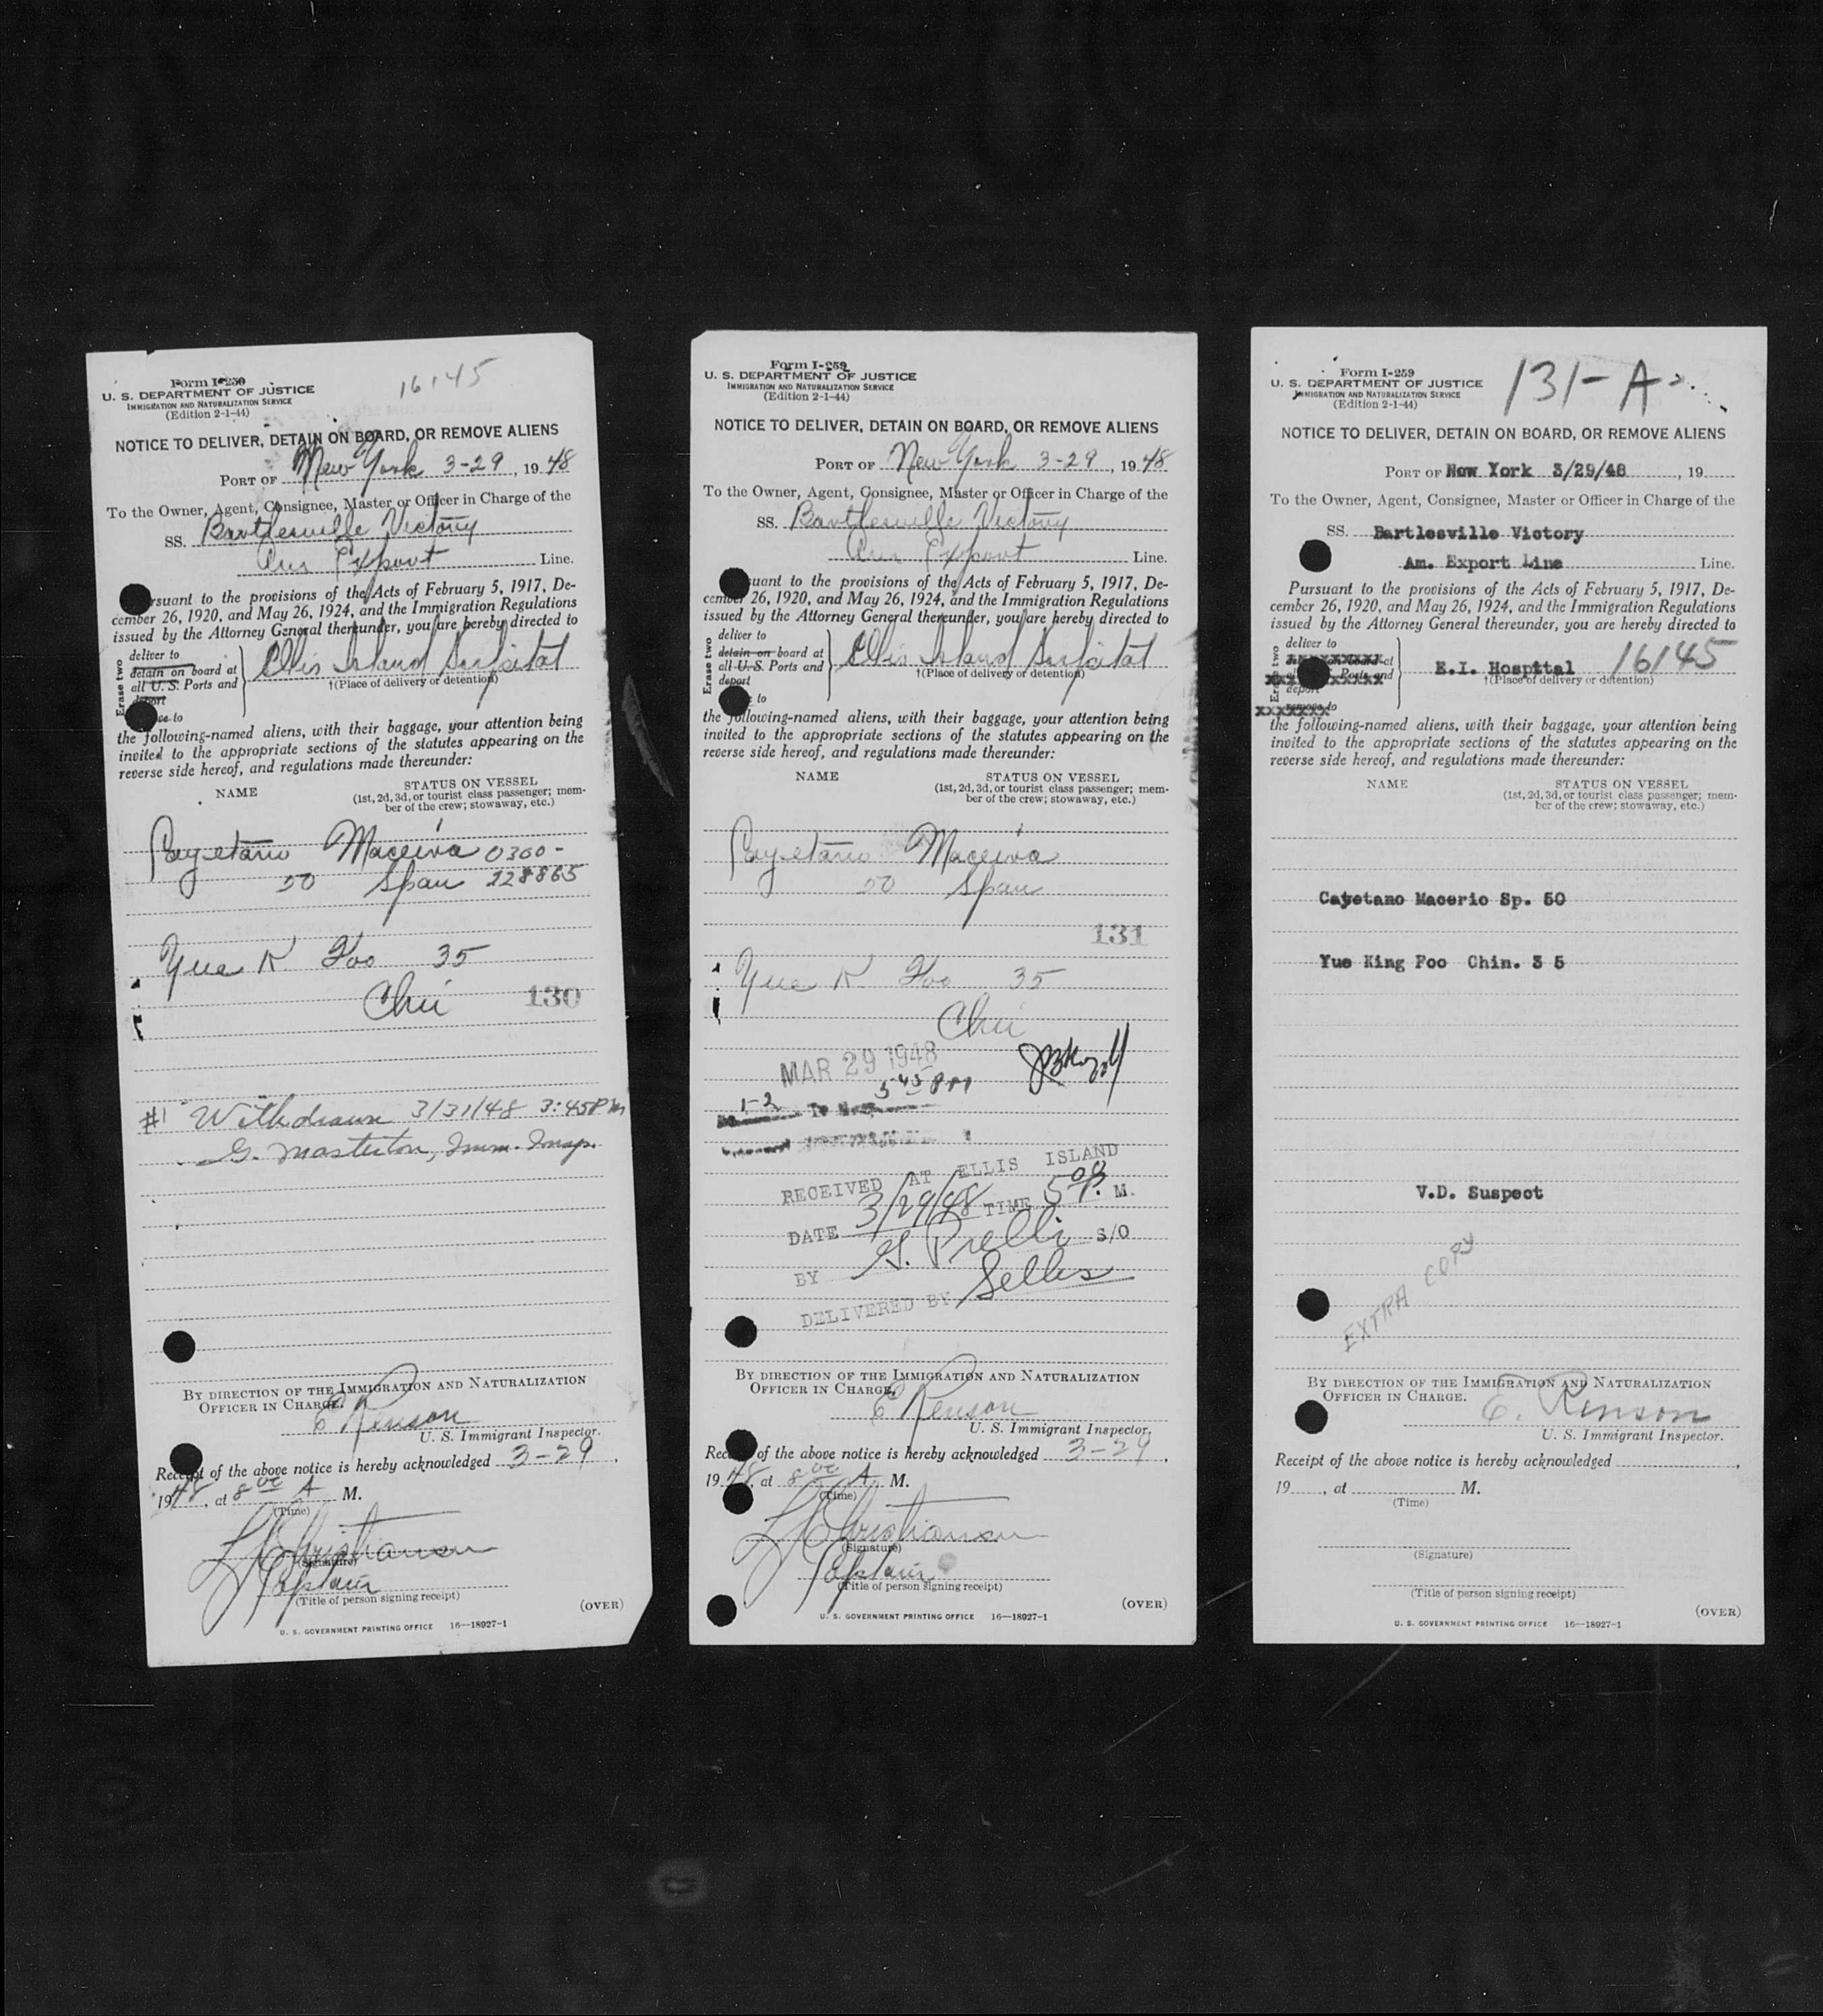 Form I-259
16145
U. S. DEPARTMENT OF JUSTICE
IMMIGRATION AND NATURALIZATION SERVICE
(Edition 2-1-44)
NOTICE TO DELIVER, DETAIN ON BOARD, OR REMOVE ALIENS
PORT OF New York 3-29, 1948
To the Owner, Agent, Consignee, Master or Officer in Charge of the
SS. Bartlesville Victory
Am Export Line.
rsuant to the provisions of the Acts of February 5, 1917, De-
cember 26, 1920, and May 26, 1924, and the Immigration Regulations
issued by the Attorney General thereunder, you are hereby directed to
Erase two
deliver to
detain on board at
all U. S. Ports and
deport
to
Ellis Island Hospital
†(Place of delivery or detention)
the following-named aliens, with their baggage, your attention being
invited to the appropriate sections of the statutes appearing on the
reverse side hereof, and regulations made thereunder:
NAME STATUS ON VESSEL
(1st, 2d, 3d, or tourist class passenger; mem-
ber of the crew; stowaway, etc.)
Cayetano Maceiva 0300-
50 Span 228865
Yue K Foo 35
Chi 130
#1 Withdrawn 3/31/48 3:45PM
G. Masterton, Imm. Insp.
BY DIRECTION OF THE IMMIGRATION AND NATURALIZATION
OFFICER IN CHARGE.
E Renson
U. S. Immigrant Inspector.
Receipt of the above notice is hereby acknowledged 3-29,
1948, at 8 00 A M.
(Time)
L Christiansen
(Signature)
Captain
(Title of person signing receipt)
(OVER)
U. S. GOVERNMENT PRINTING OFFICE 16—18927-1
Form I-259
U. S. DEPARTMENT OF JUSTICE
IMMIGRATION AND NATURALIZATION SERVICE
(Edition 2-1-44)
NOTICE TO DELIVER, DETAIN ON BOARD, OR REMOVE ALIENS
PORT OF New York 3-29, 1948
To the Owner, Agent, Consignee, Master or Officer in Charge of the
SS. Bartlesville Victory
Am Export Line.
suant to the provisions of the Acts of February 5, 1917, De-
cember 26, 1920, and May 26, 1924, and the Immigration Regulations
issued by the Attorney General thereunder, you are hereby directed to
Erase two
deliver to
detain on board at
all U. S. Ports and
deport
to
Ellis Island Hospital
†(Place of delivery or detention)
the following-named aliens, with their baggage, your attention being
invited to the appropriate sections of the statutes appearing on the
reverse side hereof, and regulations made thereunder:
NAME STATUS ON VESSEL
(1st, 2d, 3d, or tourist class passenger; mem-
ber of the crew; stowaway, etc.)
Cayetano Maceiva
50 Span
131
Yue K Foo 35
Chi
MAR 29 1948
5 45 PM
1-2
RECEIVED AT ELLIS ISLAND
DATE 3/29/48 TIME 5 00 P. M.
BY G. Prelli S/O
DELIVERED BY Sellis
BY DIRECTION OF THE IMMIGRATION AND NATURALIZATION
OFFICER IN CHARGE.
E Renson
U. S. Immigrant Inspector.
Rec of the above notice is hereby acknowledged 3-29,
1948, at 8 00 A M.
(Time)
L Christiansen
(Signature)
Captain
(Title of person signing receipt)
(OVER)
U. S. GOVERNMENT PRINTING OFFICE 16—18927-1
Form I-259
131-A
U. S. DEPARTMENT OF JUSTICE
IMMIGRATION AND NATURALIZATION SERVICE
(Edition 2-1-44)
NOTICE TO DELIVER, DETAIN ON BOARD, OR REMOVE ALIENS
PORT OF New York 3/29/48, 19
To the Owner, Agent, Consignee, Master or Officer in Charge of the
SS. Bartlesville Victory
Am. Export Line Line.
Pursuant to the provisions of the Acts of February 5, 1917, De-
cember 26, 1920, and May 26, 1924, and the Immigration Regulations
issued by the Attorney General thereunder, you are hereby directed to
deliver to
Ports and
deport
remove to
E.I. Hospital 16145
†(Place of delivery or detention)
the following-named aliens, with their baggage, your attention being
invited to the appropriate sections of the statutes appearing on the
reverse side hereof, and regulations made thereunder:
NAME STATUS ON VESSEL
(1st, 2d, 3d, or tourist class passenger; mem-
ber of the crew; stowaway, etc.)
Cayetano Macerio Sp. 50
Yue King Foo Chin. 3 5
V.D. Suspect
EXTRA COPY
BY DIRECTION OF THE IMMIGRATION AND NATURALIZATION
OFFICER IN CHARGE.
E. Renson
U. S. Immigrant Inspector.
Receipt of the above notice is hereby acknowledged ,
19 , at M.
(Time)
(Signature)
(Title of person signing receipt)
(OVER)
U. S. GOVERNMENT PRINTING OFFICE 16—18927-1